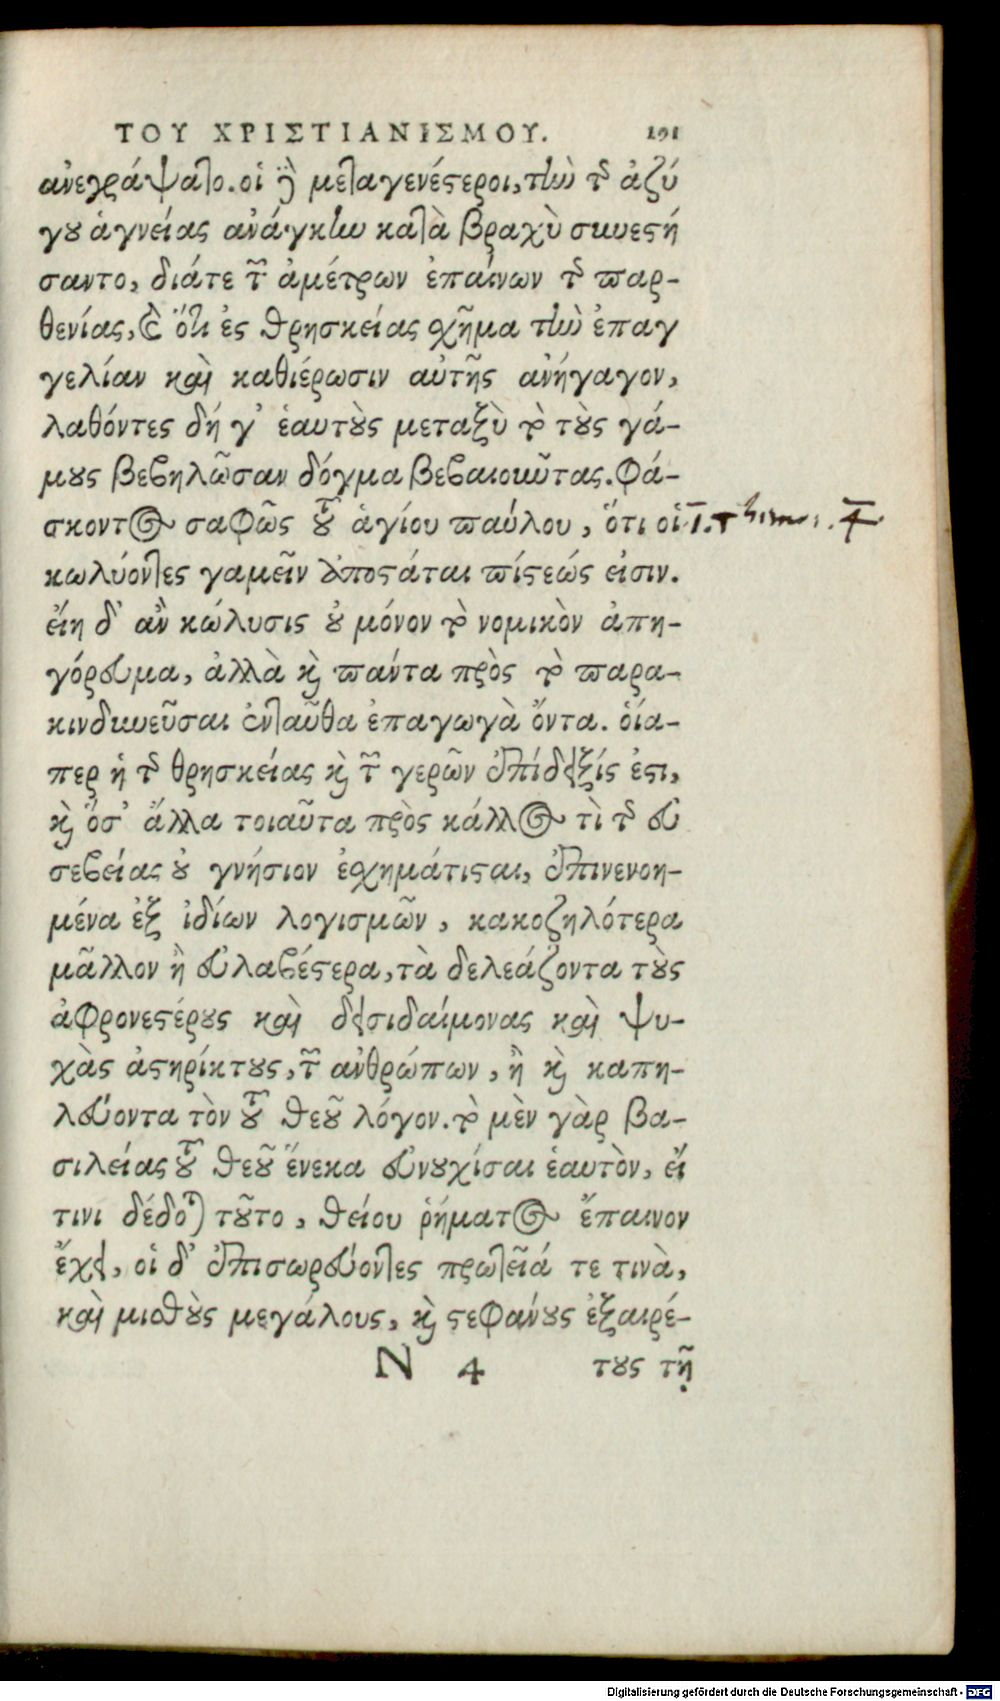 ΤΟΥ ΧΡΙΣΤΙΑΝΙΣΜΟΥ. 191
ἀνεγράψατο. οἱ δὲ μεταγενέστεροι, τὴν τῆς ἀζύ
γου ἁγνείας ἀνάγκην κατὰ βραχὺ συνεστή
σαντο, διάτε τῶν ἀμέτρων ἐπαίνων τῆς παρ-
θενίας, καὶ ὅτι ἐς θρησκείας σχῆμα τὴν ἐπαγ
γελίαν καὶ καθιέρωσιν αὐτῆς ἀνήγαγον,
λαθόντες δή γ' ἑαυτοὺς μεταξὺ τὸ τοὺς γά-
μους βεβηλῶσαν δόγμα βεβαιοῦντας. Φά-
σκοντος σαφῶς τοῦ ἁγίου παύλου, ὅτι οἱ I. Thimo. 4
κωλύοντες γαμεῖν ἀποστάται πίστεώς εἰσιν.
εἴη δ' ἂν κώλυσις οὐ μόνον τὸ νομικὸν ἀπη-
γόρευμα, ἀλλὰ καὶ πάντα πρὸς τὸ παρα-
κινδυνεῦσαι ἐνταῦθα ἐπαγωγὰ ὄντα. οἵα-
περ ἡ τῆς θρησκείας καὶ τῶν γερῶν ἐπίδειξίς ἐστι,
καὶ ὅσ' ἄλλα τοιαῦτα πρὸς κάλλος τὶ τῆς εὐ
σεβείας οὐ γνήσιον ἐσχημάτισται, ἐπινενοη-
μένα ἐξ ἰδίων λογισμῶν, κακοζηλότερα
μᾶλλον ἢ εὐλαβέστερα, τὰ δελεάζοντα τοὺς
ἀφρονεστέρους καὶ δεισιδαίμονας καὶ ψυ-
χὰς ἀστηρίκτους, τῶν ἀνθρώπων, ἢ καὶ καπη-
λεύοντα τὸν τοῦ θεοῦ λόγον. τὸ μὲν γὰρ βα-
σιλείας τοῦ θεοῦ ἕνεκα εὐνουχίσαι ἑαυτὸν, εἴ
τινι δέδοται τοῦτο, θείου ῥήματος ἔπαινον
ἔχει, οἱ δ' ἐπισωρεύοντες πρωτεῖά τε τινὰ,
καὶ μισθοὺς μεγάλους, καὶ στεφάνους ἐξαιρέ-
N 4 τους τῇ
Digitalisierung gefördert durch die Deutsche Forschungsgemeinschaft - DFG